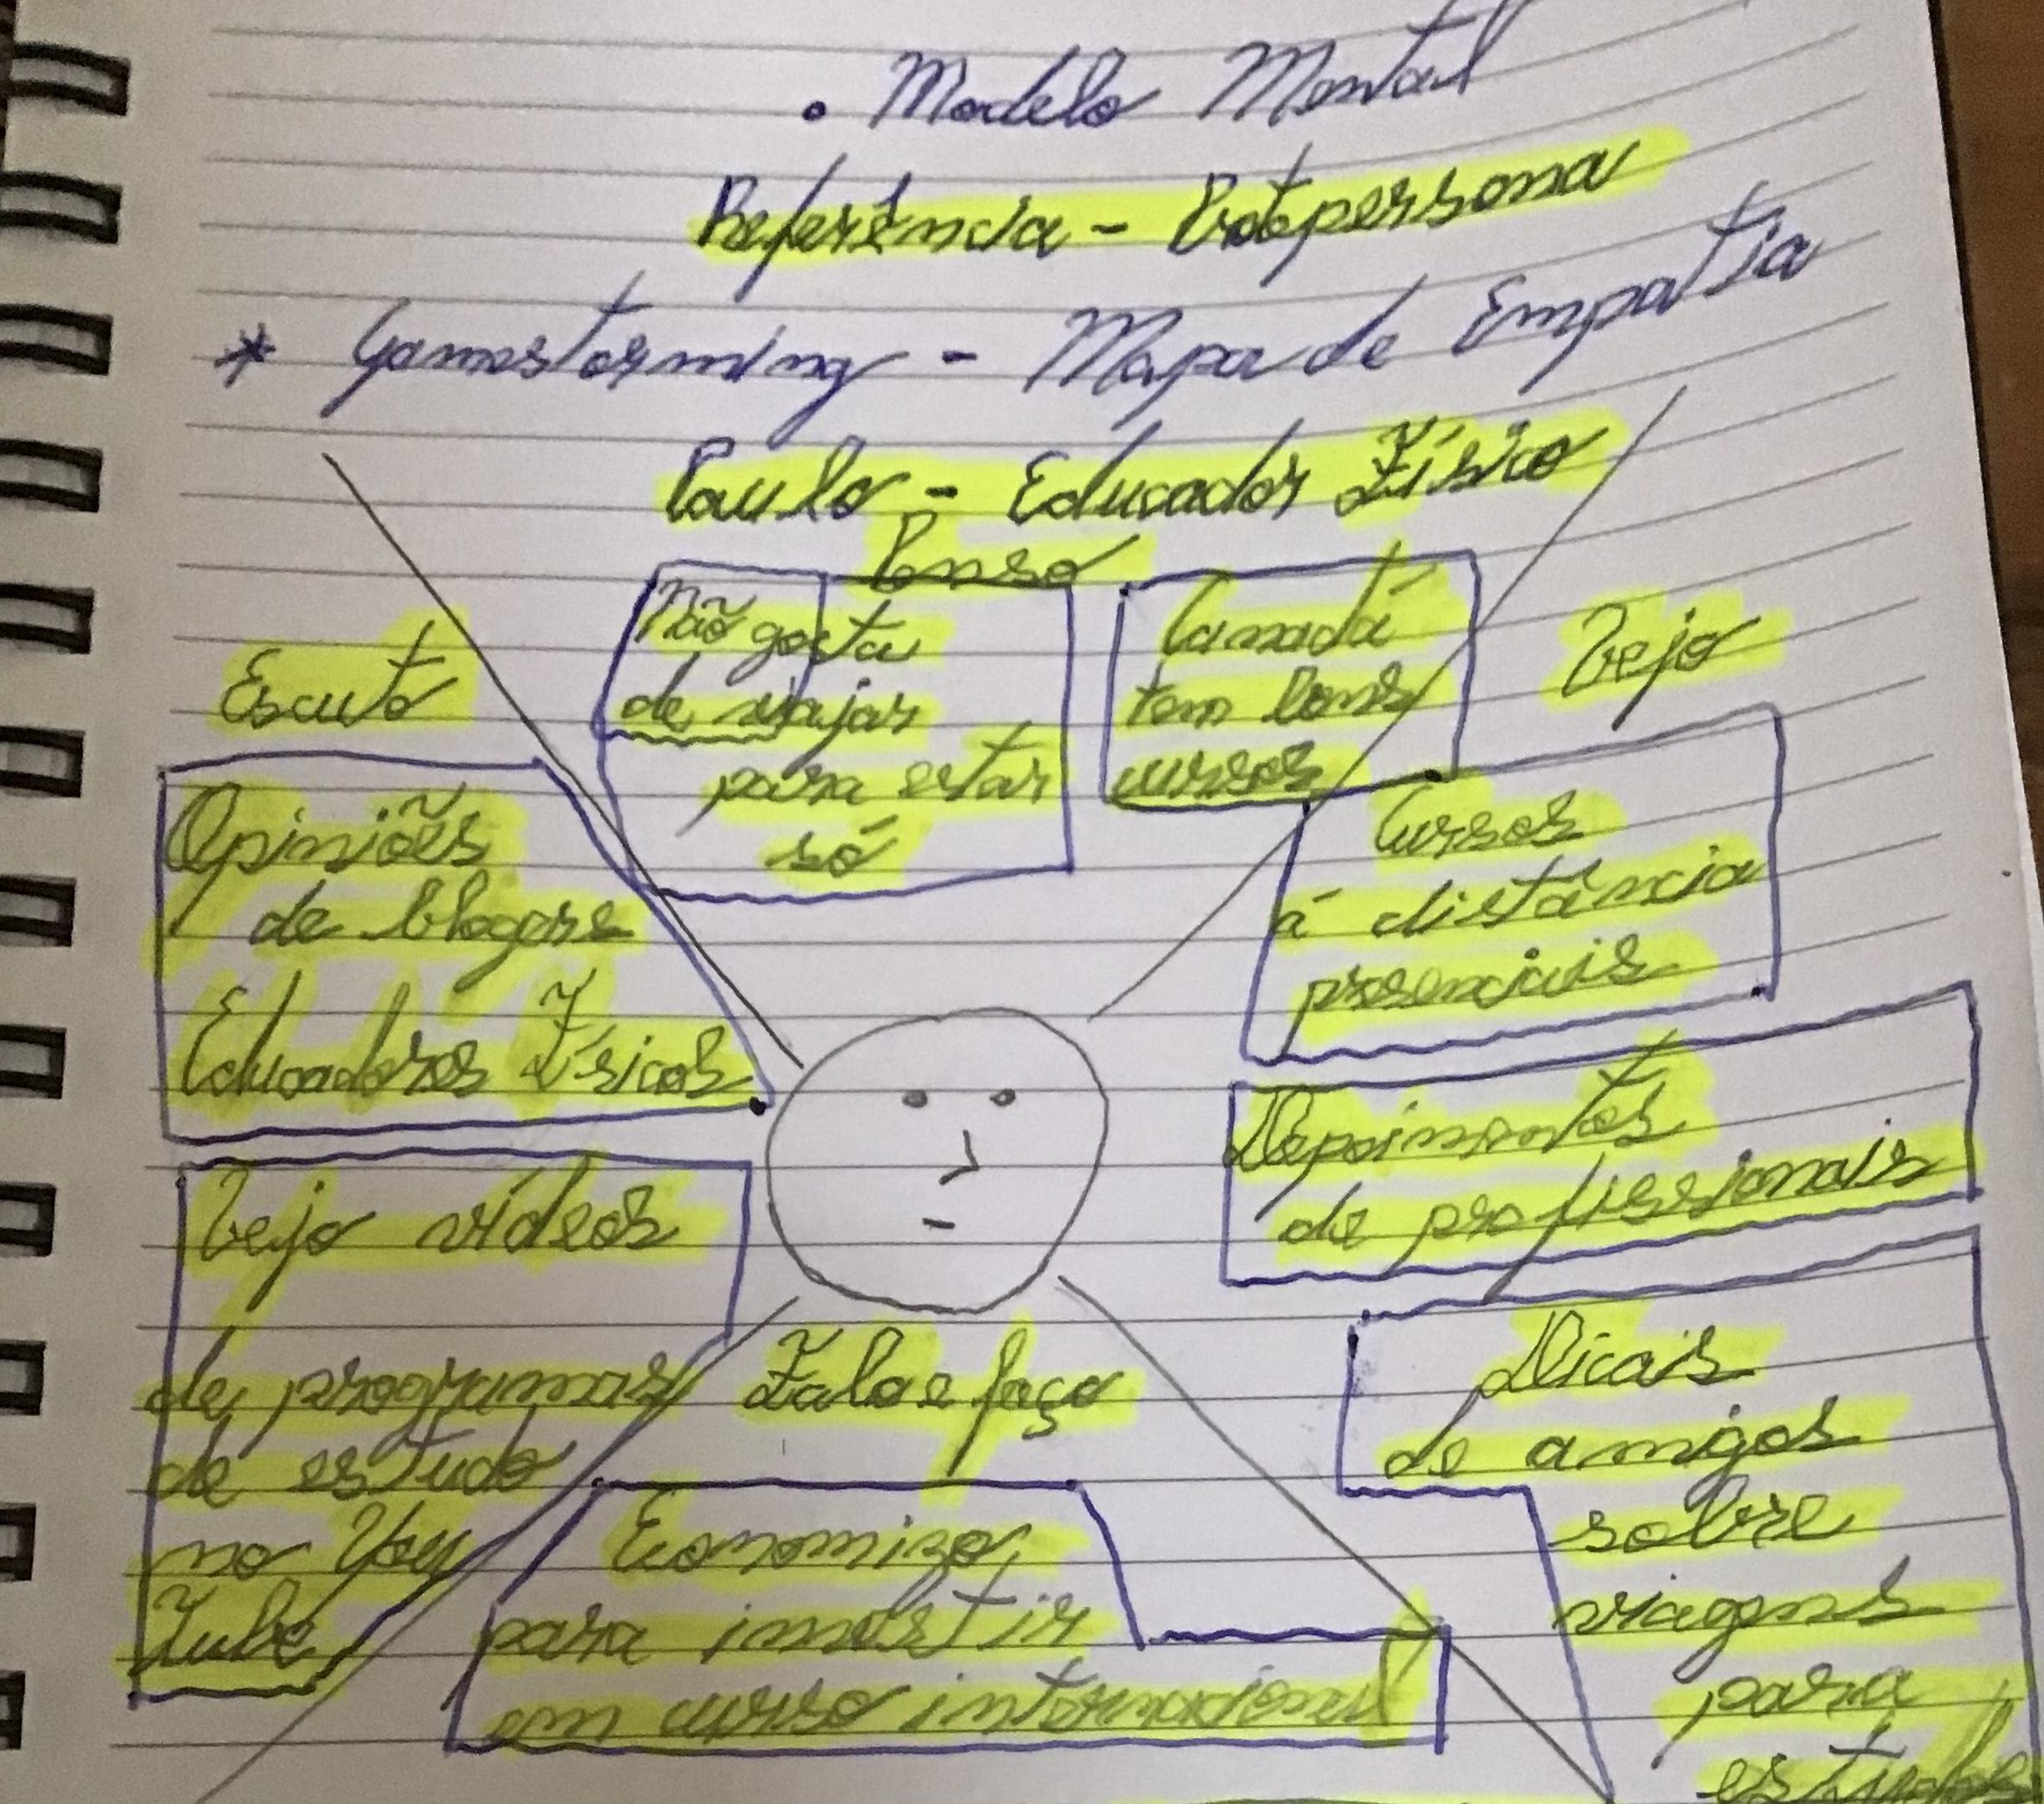 • Modelo Mental
Referência - Protopersona
* Gamestorming - Mapa de Empatia
Paulo - Educador Físico
Penso
Não gosta
de viajar
para estar
só
Canadá
tem bons
cursos
Escuto
Opiniões
de blogers
Educadores Físicos
Vejo vídeos
de programas
de estudo
no You
Tube
Vejo
Cursos
á distância
presenciais
Depoimentos
de profissionais
Dicais
de amigos
sobre
viagens
para
estudos
Falo e faço
Economizo,
para investir
em curso internacional